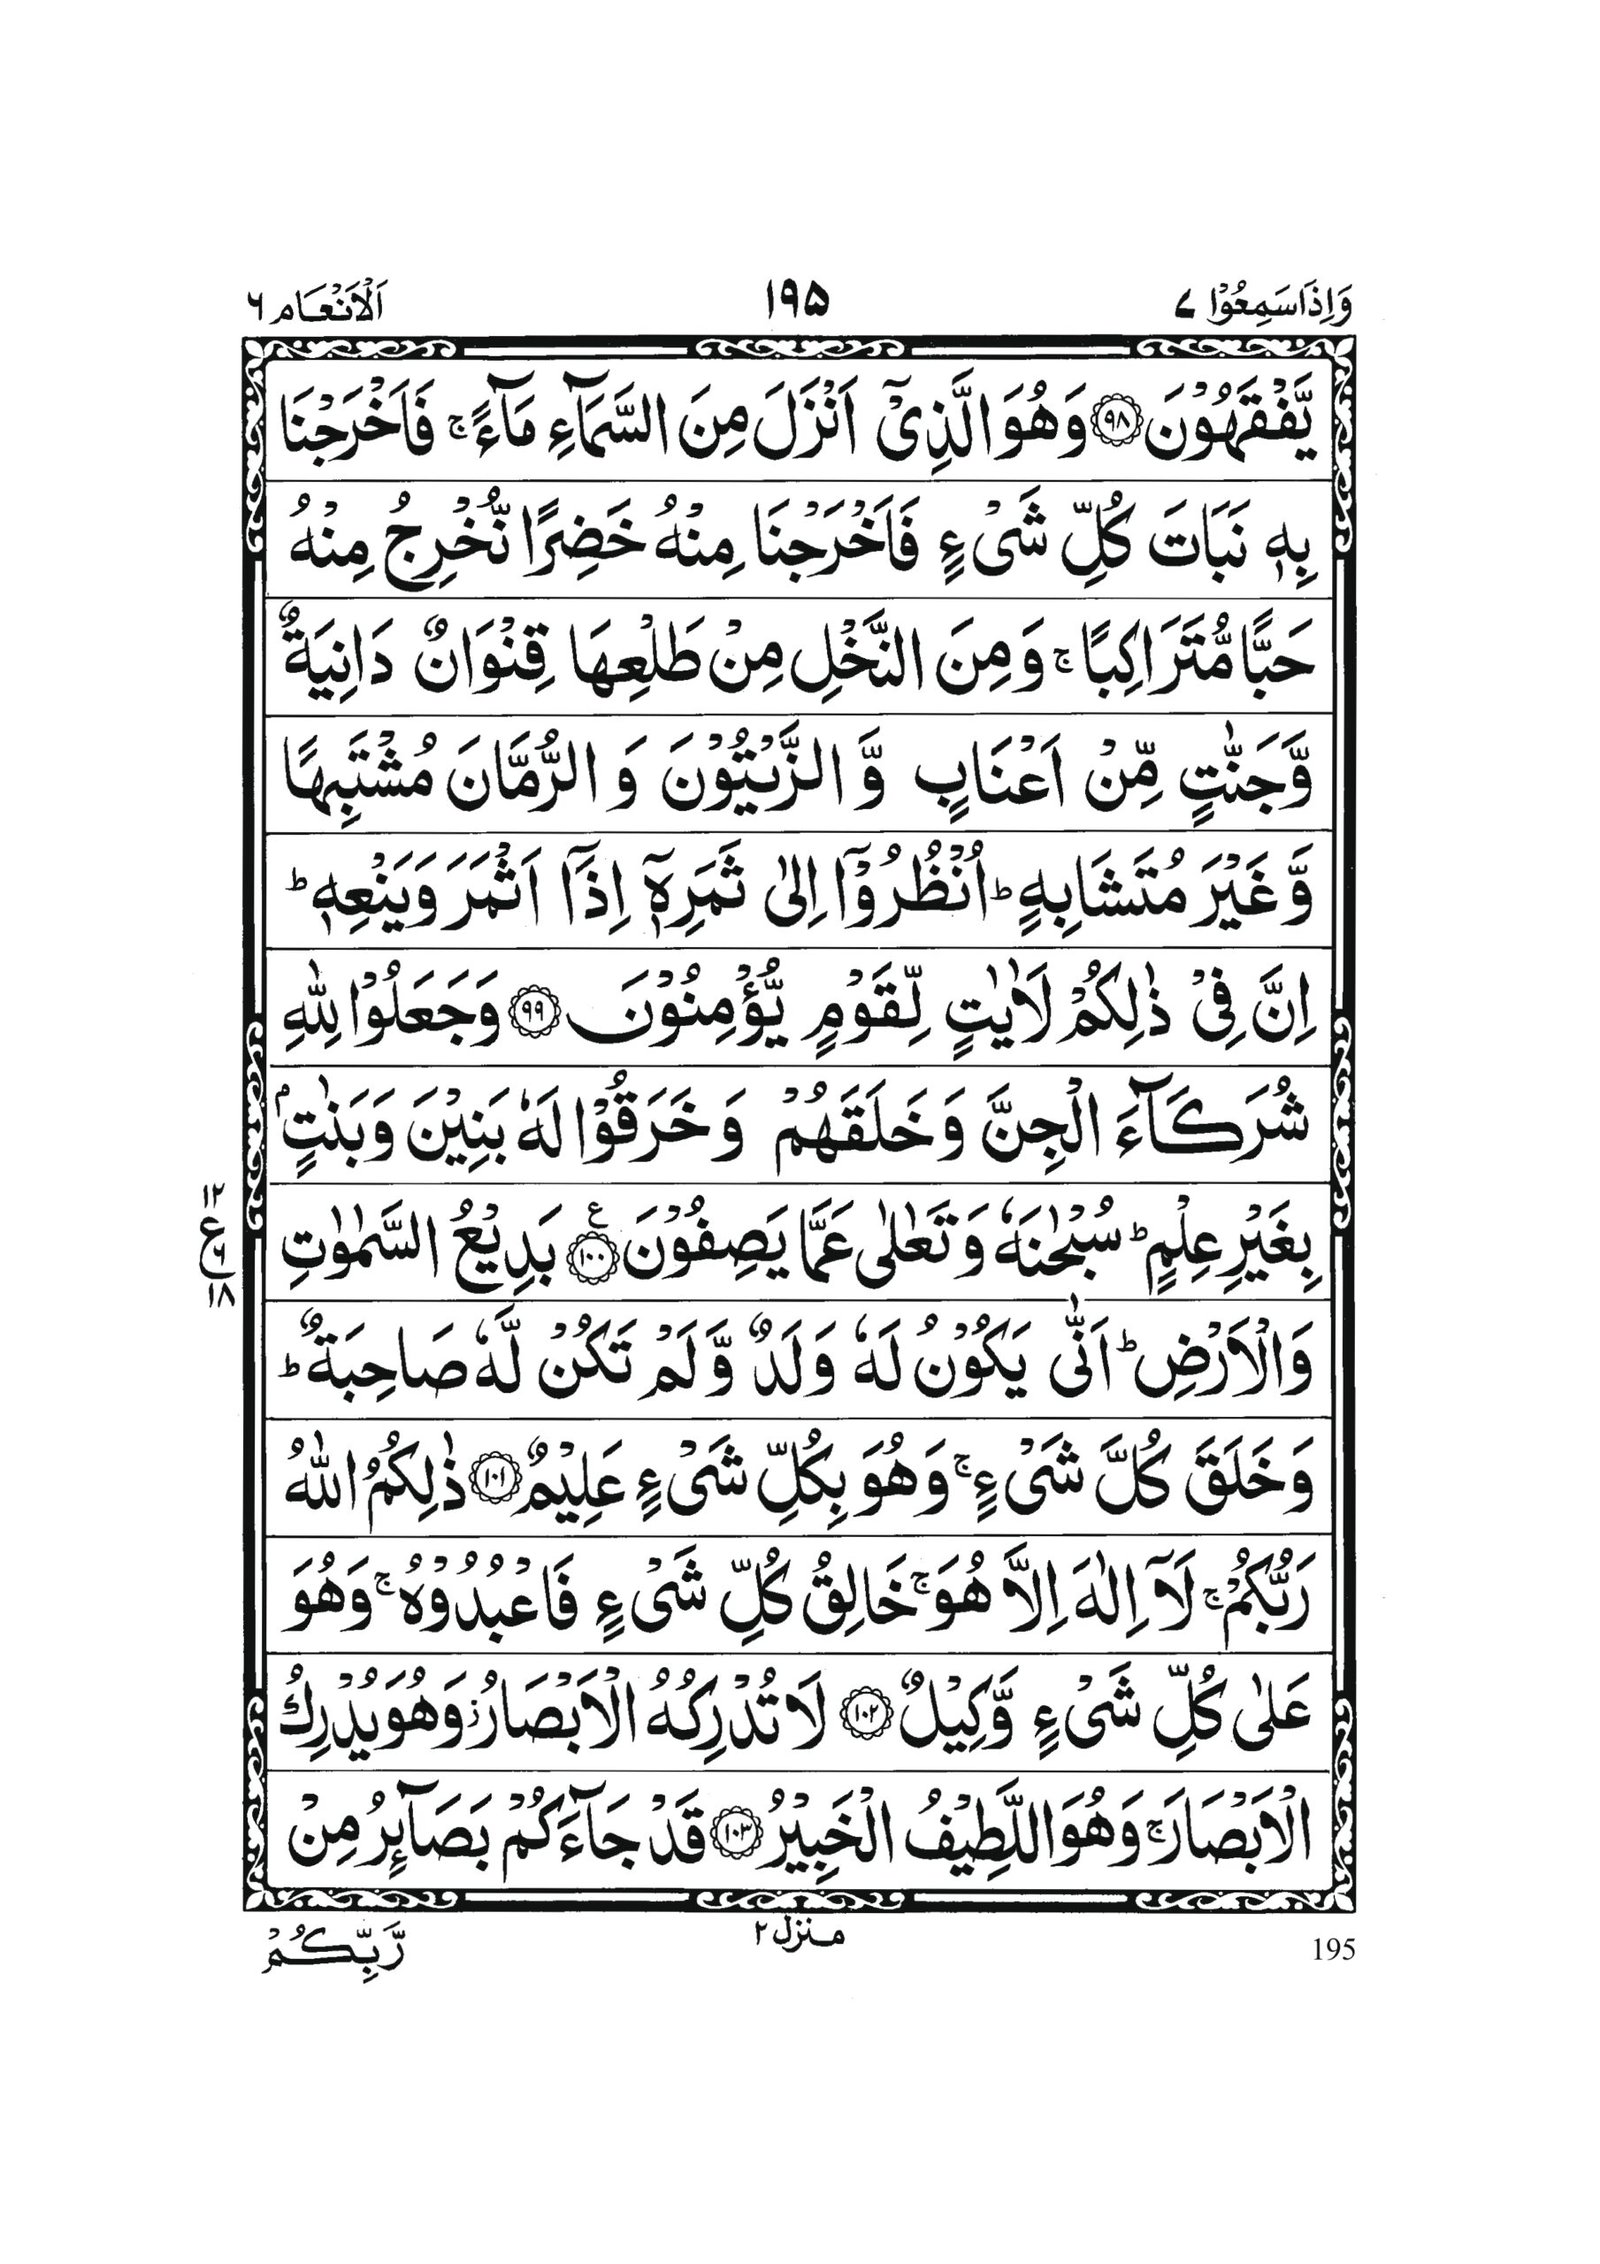 وَاِذَا سَمِعُوْا ۷
۱۹۵
اَلْاَنْعَام ۶
يَّفْقَهُوْنَ ۝۹۸ وَهُوَ الَّذِىْٓ اَنْزَلَ مِنَ السَّمَآءِ مَآءً ۚ فَاَخْرَجْنَا
بِهٖ نَبَاتَ كُلِّ شَىْءٍ فَاَخْرَجْنَا مِنْهُ خَضِرًا نُّخْرِجُ مِنْهُ
حَبًّا مُّتَرَاكِبًا ۚ وَمِنَ النَّخْلِ مِنْ طَلْعِهَا قِنْوَانٌ دَانِيَةٌ
وَّجَنّٰتٍ مِّنْ اَعْنَابٍ وَّالزَّيْتُوْنَ وَالرُّمَّانَ مُشْتَبِهًا
وَّغَيْرَ مُتَشَابِهٍ ؕ اُنْظُرُوْٓا اِلٰى ثَمَرِهٖٓ اِذَآ اَثْمَرَ وَيَنْعِهٖ ؕ
اِنَّ فِىْ ذٰلِكُمْ لَاٰيٰتٍ لِّقَوْمٍ يُّؤْمِنُوْنَ ۝۹۹ وَجَعَلُوْا لِلّٰهِ
شُرَكَآءَ الْجِنَّ وَخَلَقَهُمْ وَخَرَقُوْا لَهٗ بَنِيْنَ وَبَنٰتٍۭ
بِغَيْرِ عِلْمٍ ؕ سُبْحٰنَهٗ وَتَعٰلٰى عَمَّا يَصِفُوْنَ ۝۱۰۰ ع بَدِيْعُ السَّمٰوٰتِ
۱۲
ع ۶
۱۸
وَالْاَرْضِ ؕ اَنّٰى يَكُوْنُ لَهٗ وَلَدٌ وَّلَمْ تَكُنْ لَّهٗ صَاحِبَةٌ ؕ
وَخَلَقَ كُلَّ شَىْءٍ ۚ وَهُوَ بِكُلِّ شَىْءٍ عَلِيْمٌ ۝۱۰۱ ذٰلِكُمُ اللّٰهُ
رَبُّكُمْ ۚ لَآ اِلٰهَ اِلَّا هُوَ ۚ خَالِقُ كُلِّ شَىْءٍ فَاعْبُدُوْهُ ۚ وَهُوَ
عَلٰى كُلِّ شَىْءٍ وَّكِيْلٌ ۝۱۰۲ لَا تُدْرِكُهُ الْاَبْصَارُ ز وَهُوَ يُدْرِكُ
الْاَبْصَارَ ۚ وَهُوَ اللَّطِيْفُ الْخَبِيْرُ ۝۱۰۳ قَدْ جَآءَكُمْ بَصَآئِرُ مِنْ
رَّبِّكُمْ
منزل ۲
195